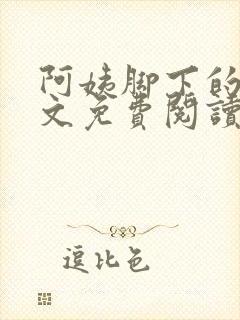 阿姨脚下的
文免費閱讀
逗比色